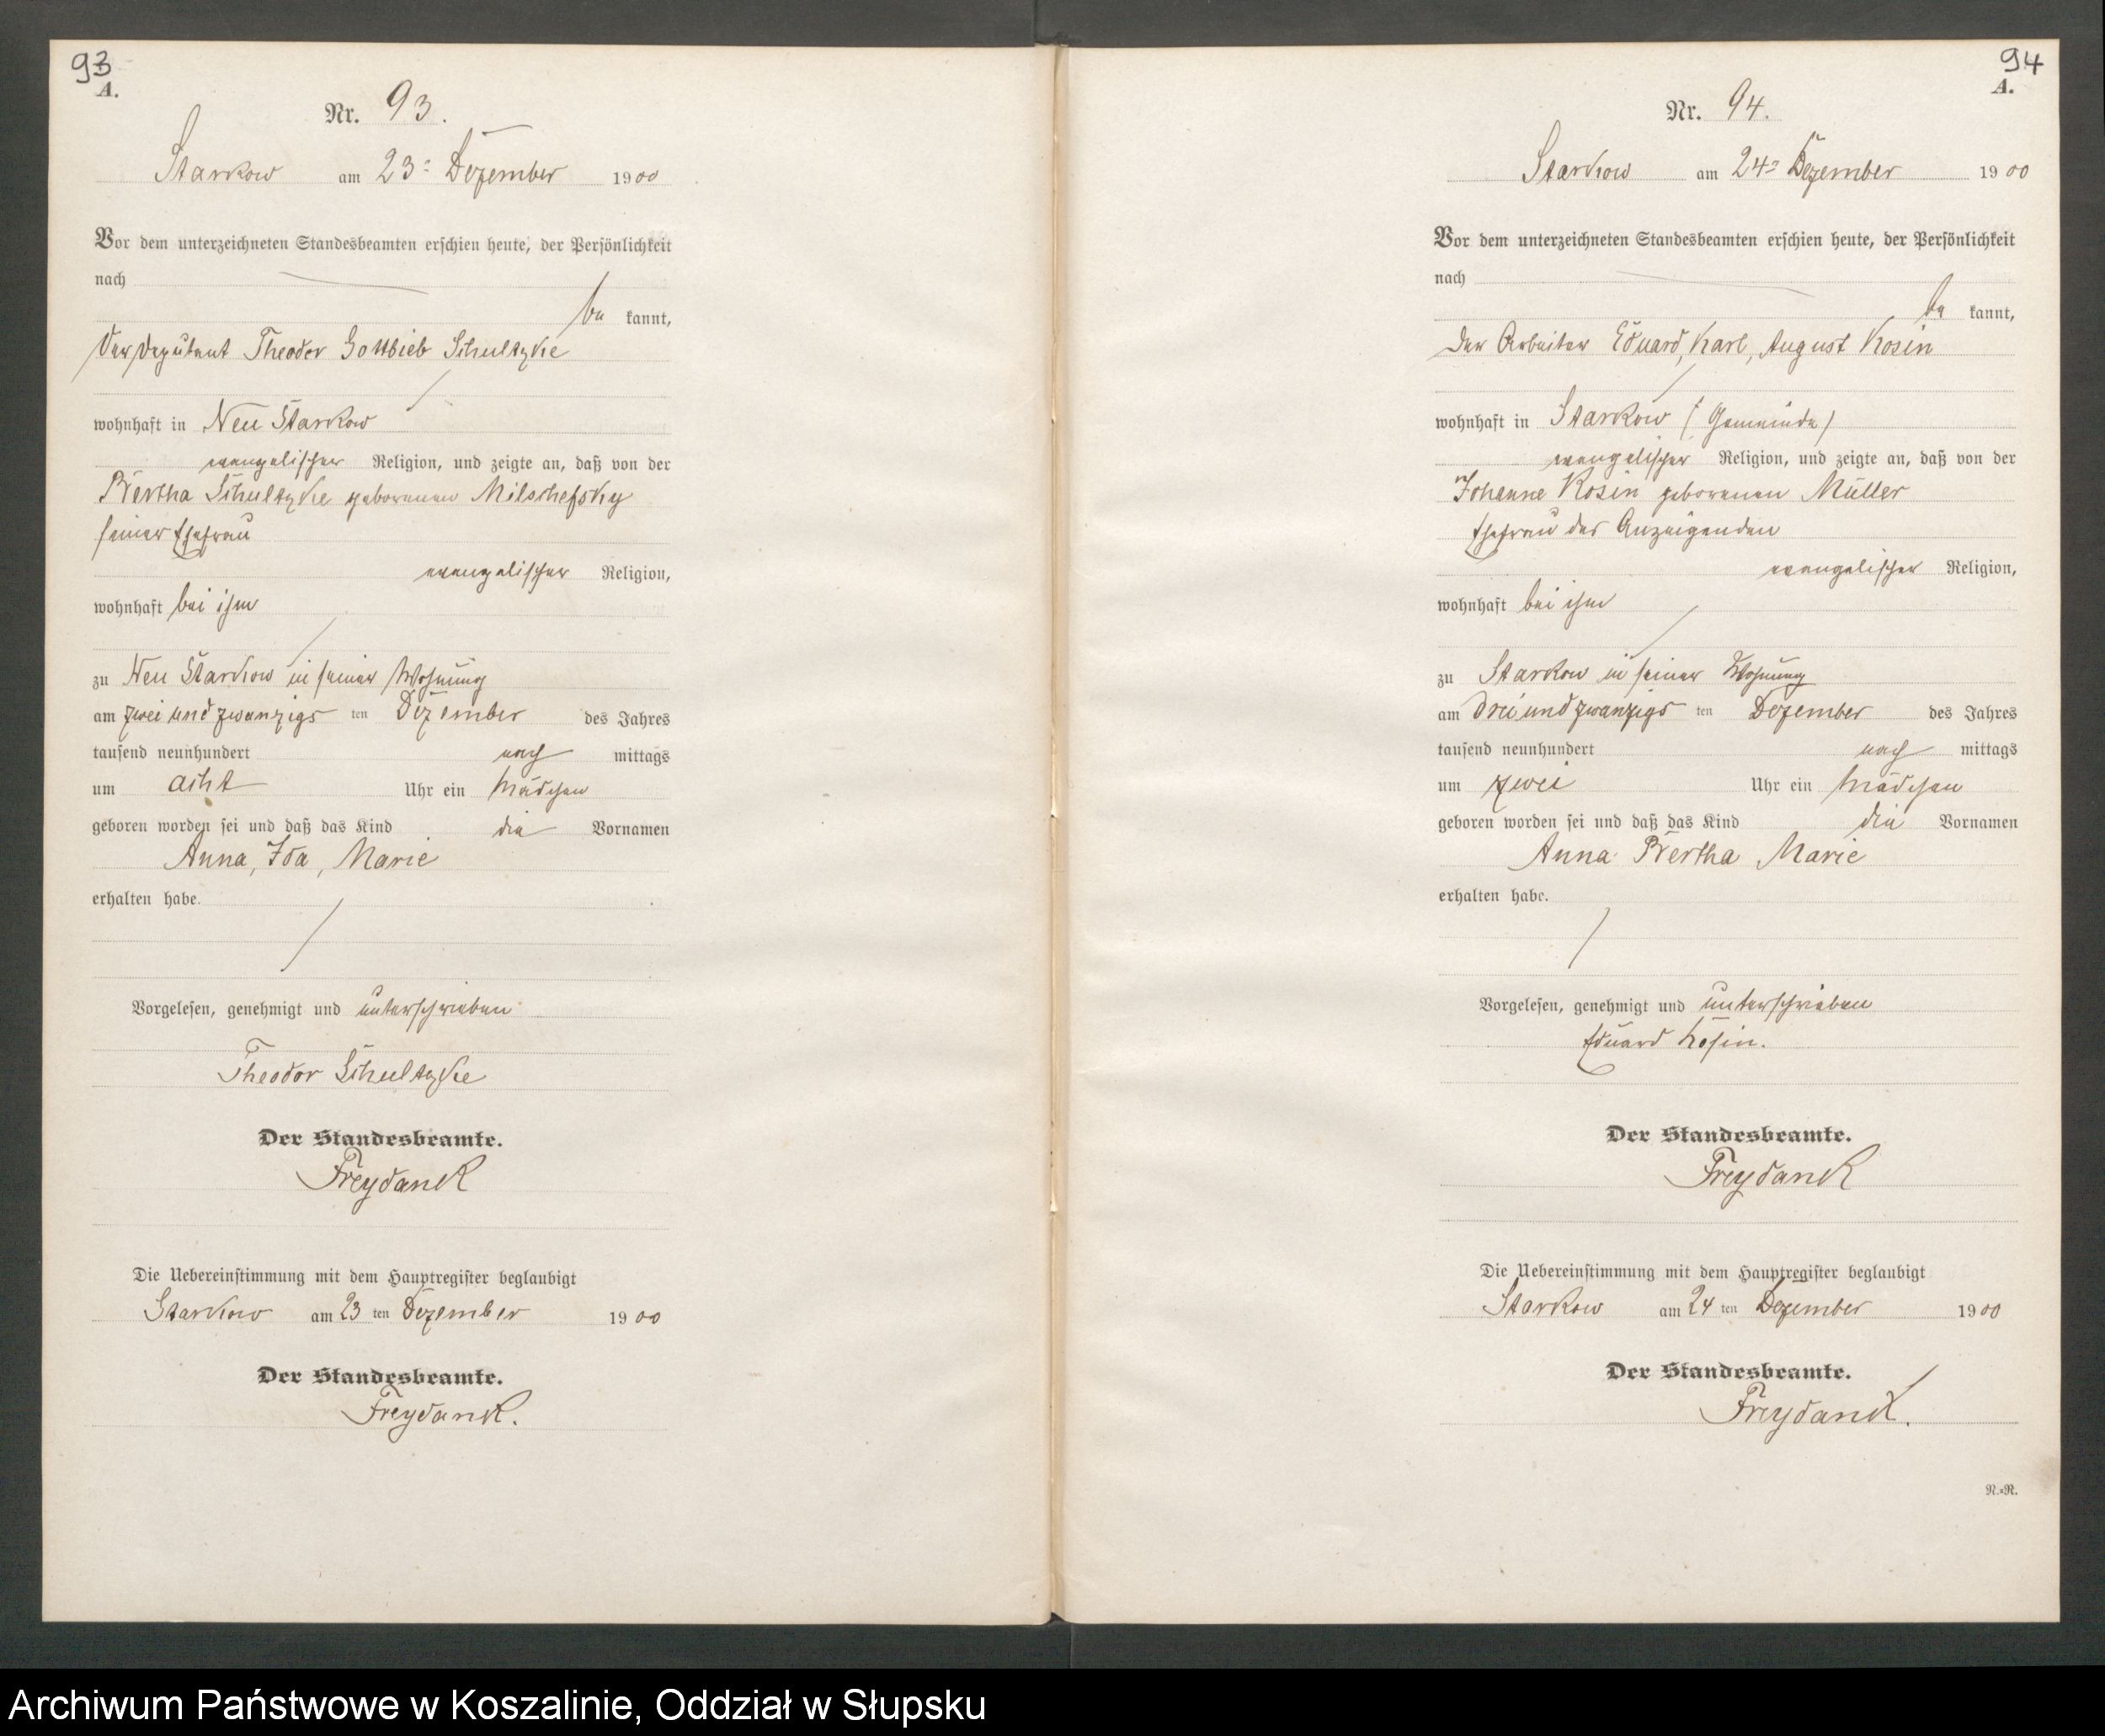 93
A.
Nr. 93.
Starkow am 23ten Dezember 1900
Vor dem unterzeichneten Standesbeamten erschien heute, der Persönlichkeit
nach
be kannt,
der Deputant Theodor Gottlieb Schultzke
wohnhaft in Neu Starkow
evangelischer Religion, und zeigte an, daß von der
Bertha Schultzke geborenen Milschefsky
seiner Ehefrau
evangelischer Religion,
wohnhaft bei ihm
zu Neu Starkow in seiner Wohnung
am zwei und zwanzigs ten Dezember des Jahres
tausend neunhundert nach mittags
um acht Uhr ein Mädchen
geboren worden sei und daß das Kind die Vornamen
Anna, Ida, Marie
erhalten habe.
Vorgelesen, genehmigt und unterschrieben
Theodor Schultzke
Der Standesbeamte.
Freydank
Die Uebereinstimmung mit dem Hauptregister beglaubigt
Starkow am 23 ten Dezember 1900
Der Standesbeamte.
Freydank.
94
A.
Nr. 94.
Starkow am 24ten Dezember 1900
Vor dem unterzeichneten Standesbeamten erschien heute, der Persönlichkeit
nach
be kannt,
der Arbeiter Eduard, Karl, August Kosin
wohnhaft in Starkow (Gemeinde)
evangelischer Religion, und zeigte an, daß von der
Johanne Kosin geborenen Müller
Ehefrau des Anzeigenden
evangelischer Religion,
wohnhaft bei ihm
zu Starkow in seiner Wohnung
am drei und zwanzigs ten Dezember des Jahres
tausend neunhundert nach mittags
um zwei Uhr ein Mädchen
geboren worden sei und daß das Kind die Vornamen
Anna Bertha Marie
erhalten habe.
Vorgelesen, genehmigt und unterschrieben
Eduard Kosin.
Der Standesbeamte.
Freydank
Die Uebereinstimmung mit dem Hauptregister beglaubigt
Starkow am 24 ten Dezember 1900
Der Standesbeamte.
Freydank.
N.=R.
Archiwum Państwowe w Koszalinie, Oddział w Słupsku